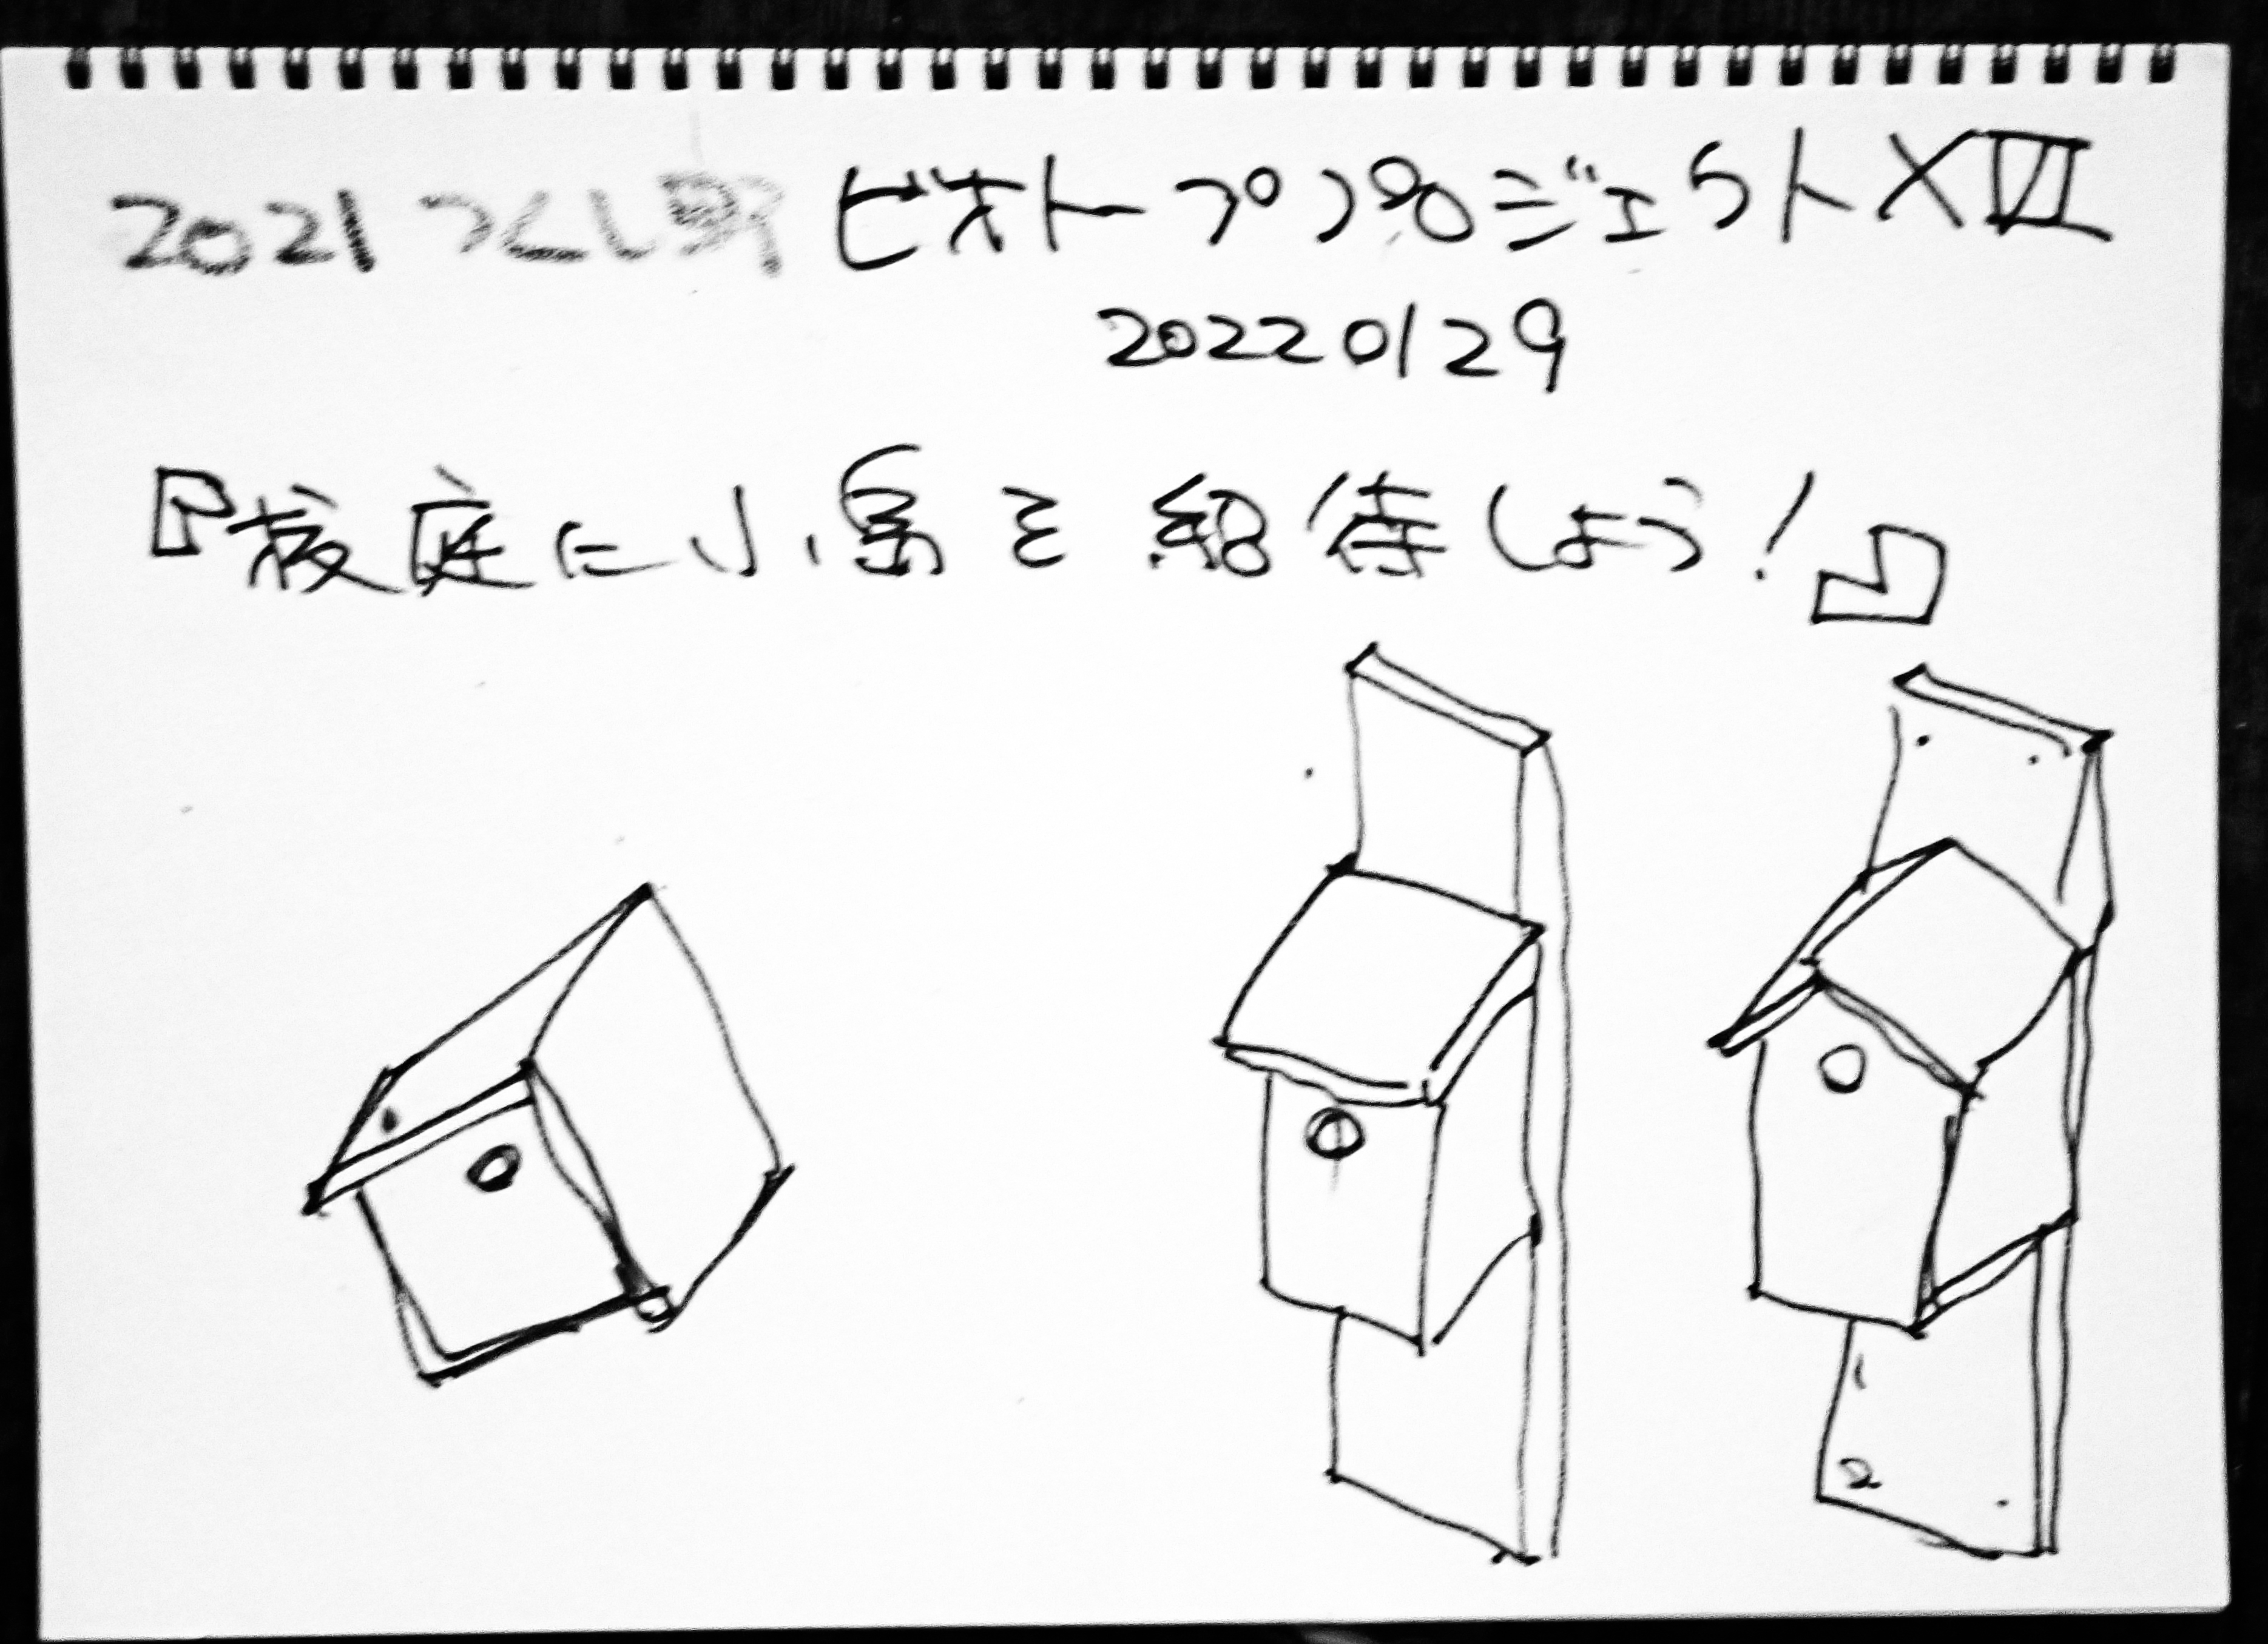 2021 つくし野 ビオトーププロジェクト XVI
20220129
『校庭に小鳥を招待しよう!』
2